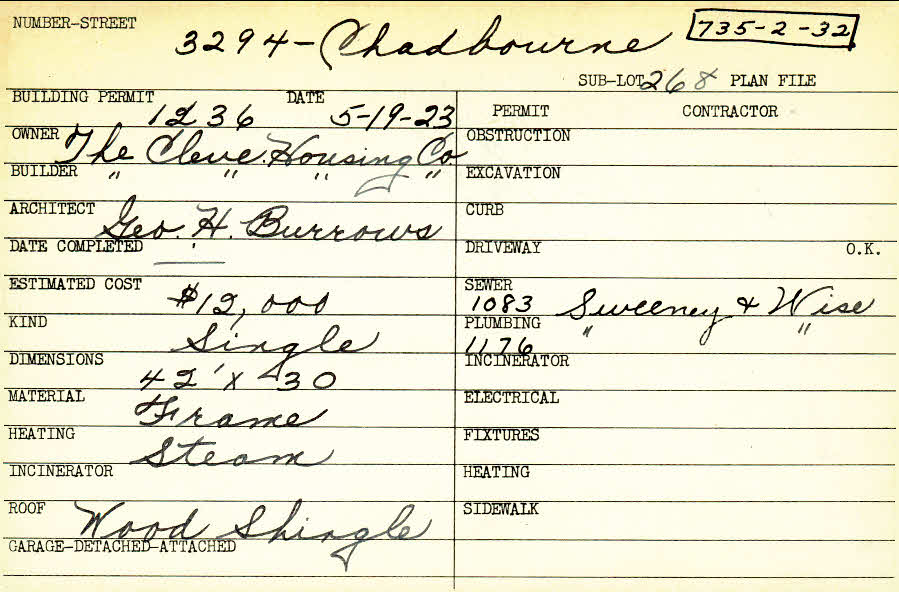 NUMBER-STREET 3294-Chadbourne 735-2-32
SUB-LOT 268 PLAN FILE
BUILDING PERMIT 1236 DATE 5-19-23
OWNER The Cleve. Housing Co.
BUILDER " " " "
ARCHITECT Geo. H. Burrows
DATE COMPLETED
ESTIMATED COST $12,000
KIND Single
DIMENSIONS 42' x 30
MATERIAL Frame
HEATING Steam
INCINERATOR
ROOF Wood Shingle
GARAGE-DETACHED-ATTACHED
PERMIT CONTRACTOR
OBSTRUCTION
EXCAVATION
CURB
DRIVEWAY O.K.
SEWER 1083 Sweeney & Wise
PLUMBING 1176 " "
INCINERATOR
ELECTRICAL
FIXTURES
HEATING
SIDEWALK